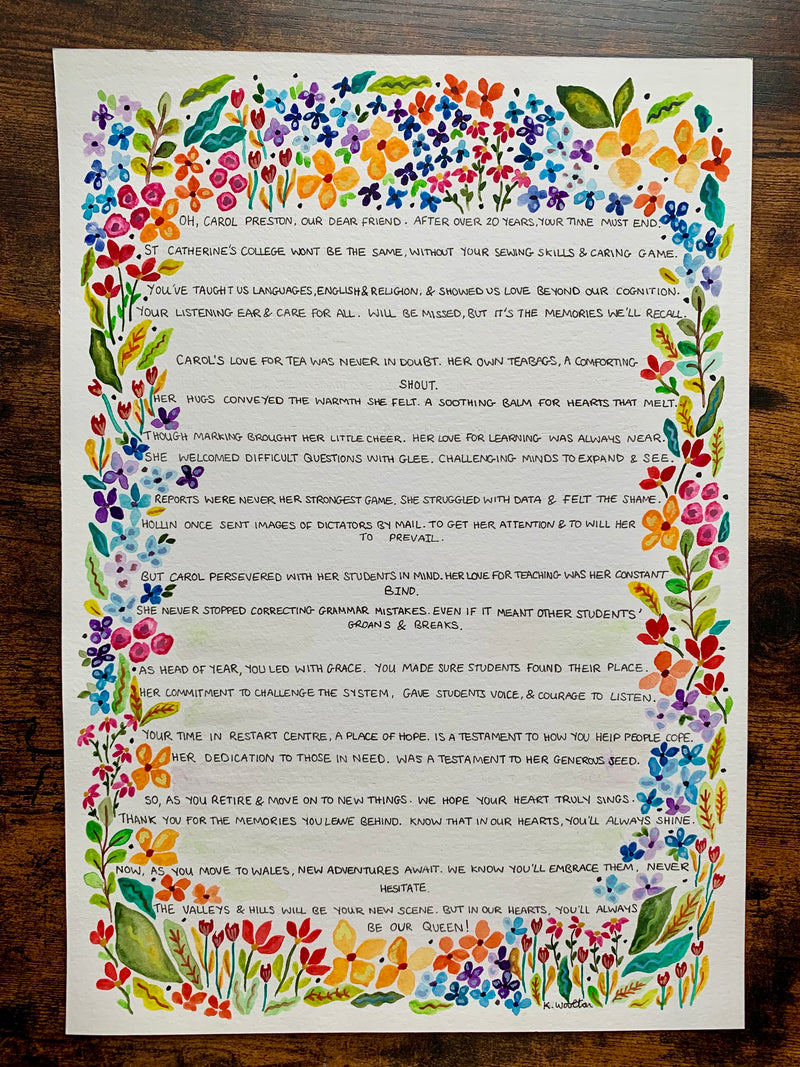 OH, CAROL PRESTON, OUR DEAR FRIEND. AFTER OVER 20 YEARS, YOUR TIME MUST END.
ST CATHERINE'S COLLEGE WONT BE THE SAME, WITHOUT YOUR SEWING SKILLS & CARING GAME.
YOU'VE TAUGHT US LANGUAGES, ENGLISH & RELIGION, & SHOWED US LOVE BEYOND OUR COGNITION.
YOUR LISTENING EAR & CARE FOR ALL. WILL BE MISSED, BUT IT'S THE MEMORIES WE'LL RECALL.
CAROL'S LOVE FOR TEA WAS NEVER IN DOUBT. HER OWN TEABAGS, A COMFORTING
SHOUT.
HER HUGS CONVEYED THE WARMTH SHE FELT. A SOOTHING BALM FOR HEARTS THAT MELT.
THOUGH MARKING BROUGHT HER LITTLE CHEER. HER LOVE FOR LEARNING WAS ALWAYS NEAR.
SHE WELCOMED DIFFICULT QUESTIONS WITH GLEE. CHALLENGING MINDS TO EXPAND & SEE.
REPORTS WERE NEVER HER STRONGEST GAME. SHE STRUGGLED WITH DATA & FELT THE SHAME.
HOLLIN ONCE SENT IMAGES OF DICTATORS BY MAIL. TO GET HER ATTENTION & TO WILL HER
TO PREVAIL.
BUT CAROL PERSEVERED WITH HER STUDENTS IN MIND. HER LOVE FOR TEACHING WAS HER CONSTANT
BIND.
SHE NEVER STOPPED CORRECTING GRAMMAR MISTAKES. EVEN IF IT MEANT OTHER STUDENTS'
GROANS & BREAKS.
AS HEAD OF YEAR, YOU LED WITH GRACE. YOU MADE SURE STUDENTS FOUND THEIR PLACE.
HER COMMITMENT TO CHALLENGE THE SYSTEM, GAVE STUDENTS VOICE, & COURAGE TO LISTEN.
YOUR TIME IN RESTART CENTRE, A PLACE OF HOPE. IS A TESTAMENT TO HOW YOU HELP PEOPLE COPE.
HER DEDICATION TO THOSE IN NEED. WAS A TESTAMENT TO HER GENEROUS SEED.
SO, AS YOU RETIRE & MOVE ON TO NEW THINGS. WE HOPE YOUR HEART TRULY SINGS.
THANK YOU FOR THE MEMORIES YOU LEAVE BEHIND. KNOW THAT IN OUR HEARTS, YOU'LL ALWAYS SHINE.
NOW, AS YOU MOVE TO WALES, NEW ADVENTURES AWAIT. WE KNOW YOU'LL EMBRACE THEM, NEVER
HESITATE.
THE VALLEYS & HILLS WILL BE YOUR NEW SCENE. BUT IN OUR HEARTS, YOU'LL ALWAYS
BE OUR QUEEN!